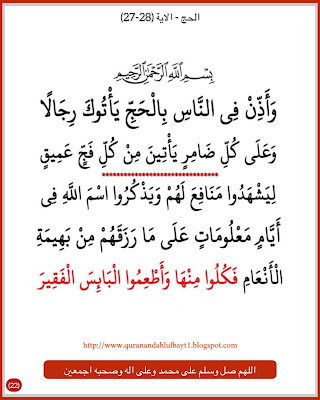 الحج - الاية (28-27)
بِسْمِ اللَّهِ الرَّحْمَٰنِ الرَّحِيمِ
وَأَذِّنْ فِى النَّاسِ بِالْحَجِّ يَأْتُوكَ رِجَالًا
وَعَلَى كُلِّ ضَامِرٍ يَأْتِينَ مِنْ كُلِّ فَجٍّ عَمِيقٍ
لِيَشْهَدُوا مَنَافِعَ لَهُمْ وَيَذْكُرُوا اسْمَ اللَّهِ فِى
أَيَّامٍ مَعْلُومَاتٍ عَلَى مَا رَزَقَهُمْ مِنْ بَهِيمَةِ
الْأَنْعَامِ فَكُلُوا مِنْهَا وَأَطْعِمُوا الْبَائِسَ الْفَقِيرَ
http://www.quranandahlulbayt1.blogspot.com
اللهم صل وسلم على محمد وعلى اله وصحبه اجمعين
(22)